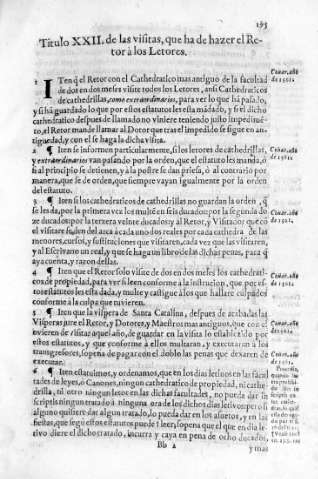 195
Titulo XXII. de las visitas, que ha de hazer el Re-
tor à los Letores.
1 ITen q̃ el Retor con el Cathedratico mas antiguo de la facultad
de dos en dos meses visite todos los Letores, ansi Cathedraticos
de cathedrillas, como extraordinarios, para ver lo que há pasado,
y si há guardado lo que por estos estatutos les està mádado, y si el dicho
cathedratico despues de llamado no viniere teniendo justo impedimẽ-
to, el Retor mande llamar al Dotor que tras el impedido se sigue en an-
tiguedad, y con el se haga la dicha visita.
2 ¶ Iten se informen particularmente, si los letores de cathedrillas,
y extraordinarios van pasando por la orden, que el estatuto les manda, ò
si al principio se detienen, y à la postre se dan priesa, ò al contrario por
manera, que se de orden, que siempre vayan igualmente por la orden
del estatuto.
3 ¶ Iten si los cathedraticos de cathedrillas no guardan la orden, q̃
se les da, por la primera vez les multẽ en seis ducados por la segunda do-
ze ducados por la tercera veinte ducados y al Retor, y Visitador que cõ
el visitare se den del arca à cada uno dos reales por cada cathedra de las
menores, cursos, y sustituciones que visitaren, cada vez que las visitaren,
y al Escrivano un real, y que se haga un libro de las dichas penas, para q̃
aya cuenta, y razon dellas.
4 ¶ Iten que el Retor solo visite de dos en dos meses los cathedrati-
cos de propiedad, para ver si leen conforme à la institucion, que por es-
tos estatutos les esta dada, y multe y castigue à los que hallare culpados
conforme à la culpa que tuvieren.
5 ¶ Iten que la vispera de Santa Catalina, despues de acabadas las
Visperas jure el Retor, y Dotores, y Maestros mas antiguos, que con el
uvieren de visitar aquel año, de guardar en la visita lo establecido por
estos estatutos, y que conforme à ellos multarán, y executarán à los
transgresores, so pena de pagar con el doblo las penas que dexaren de
executar.
6 ¶ Iten estatuimos, y ordenamos, que en los dias lectivos en las facul-
tades de leyes, ò Canones, ningun cathedratico de propiedad, ni cathe-
drilla, ni otro ningun letor en las dichas facultades, no pueda dar in
scriptis ningun tratado à ninguna ora de los dichos dias lectivos, pero si
alguno quisiere dar algun tratado, lo pueda dar en los asuetos, y en las
fiestas, que segũ estos estatutos puede leer, so pena que el que en dia le-
ctivo diere el dicho tratado, incurra y caya en pena de ocho ducados,
Bb 2
y mas